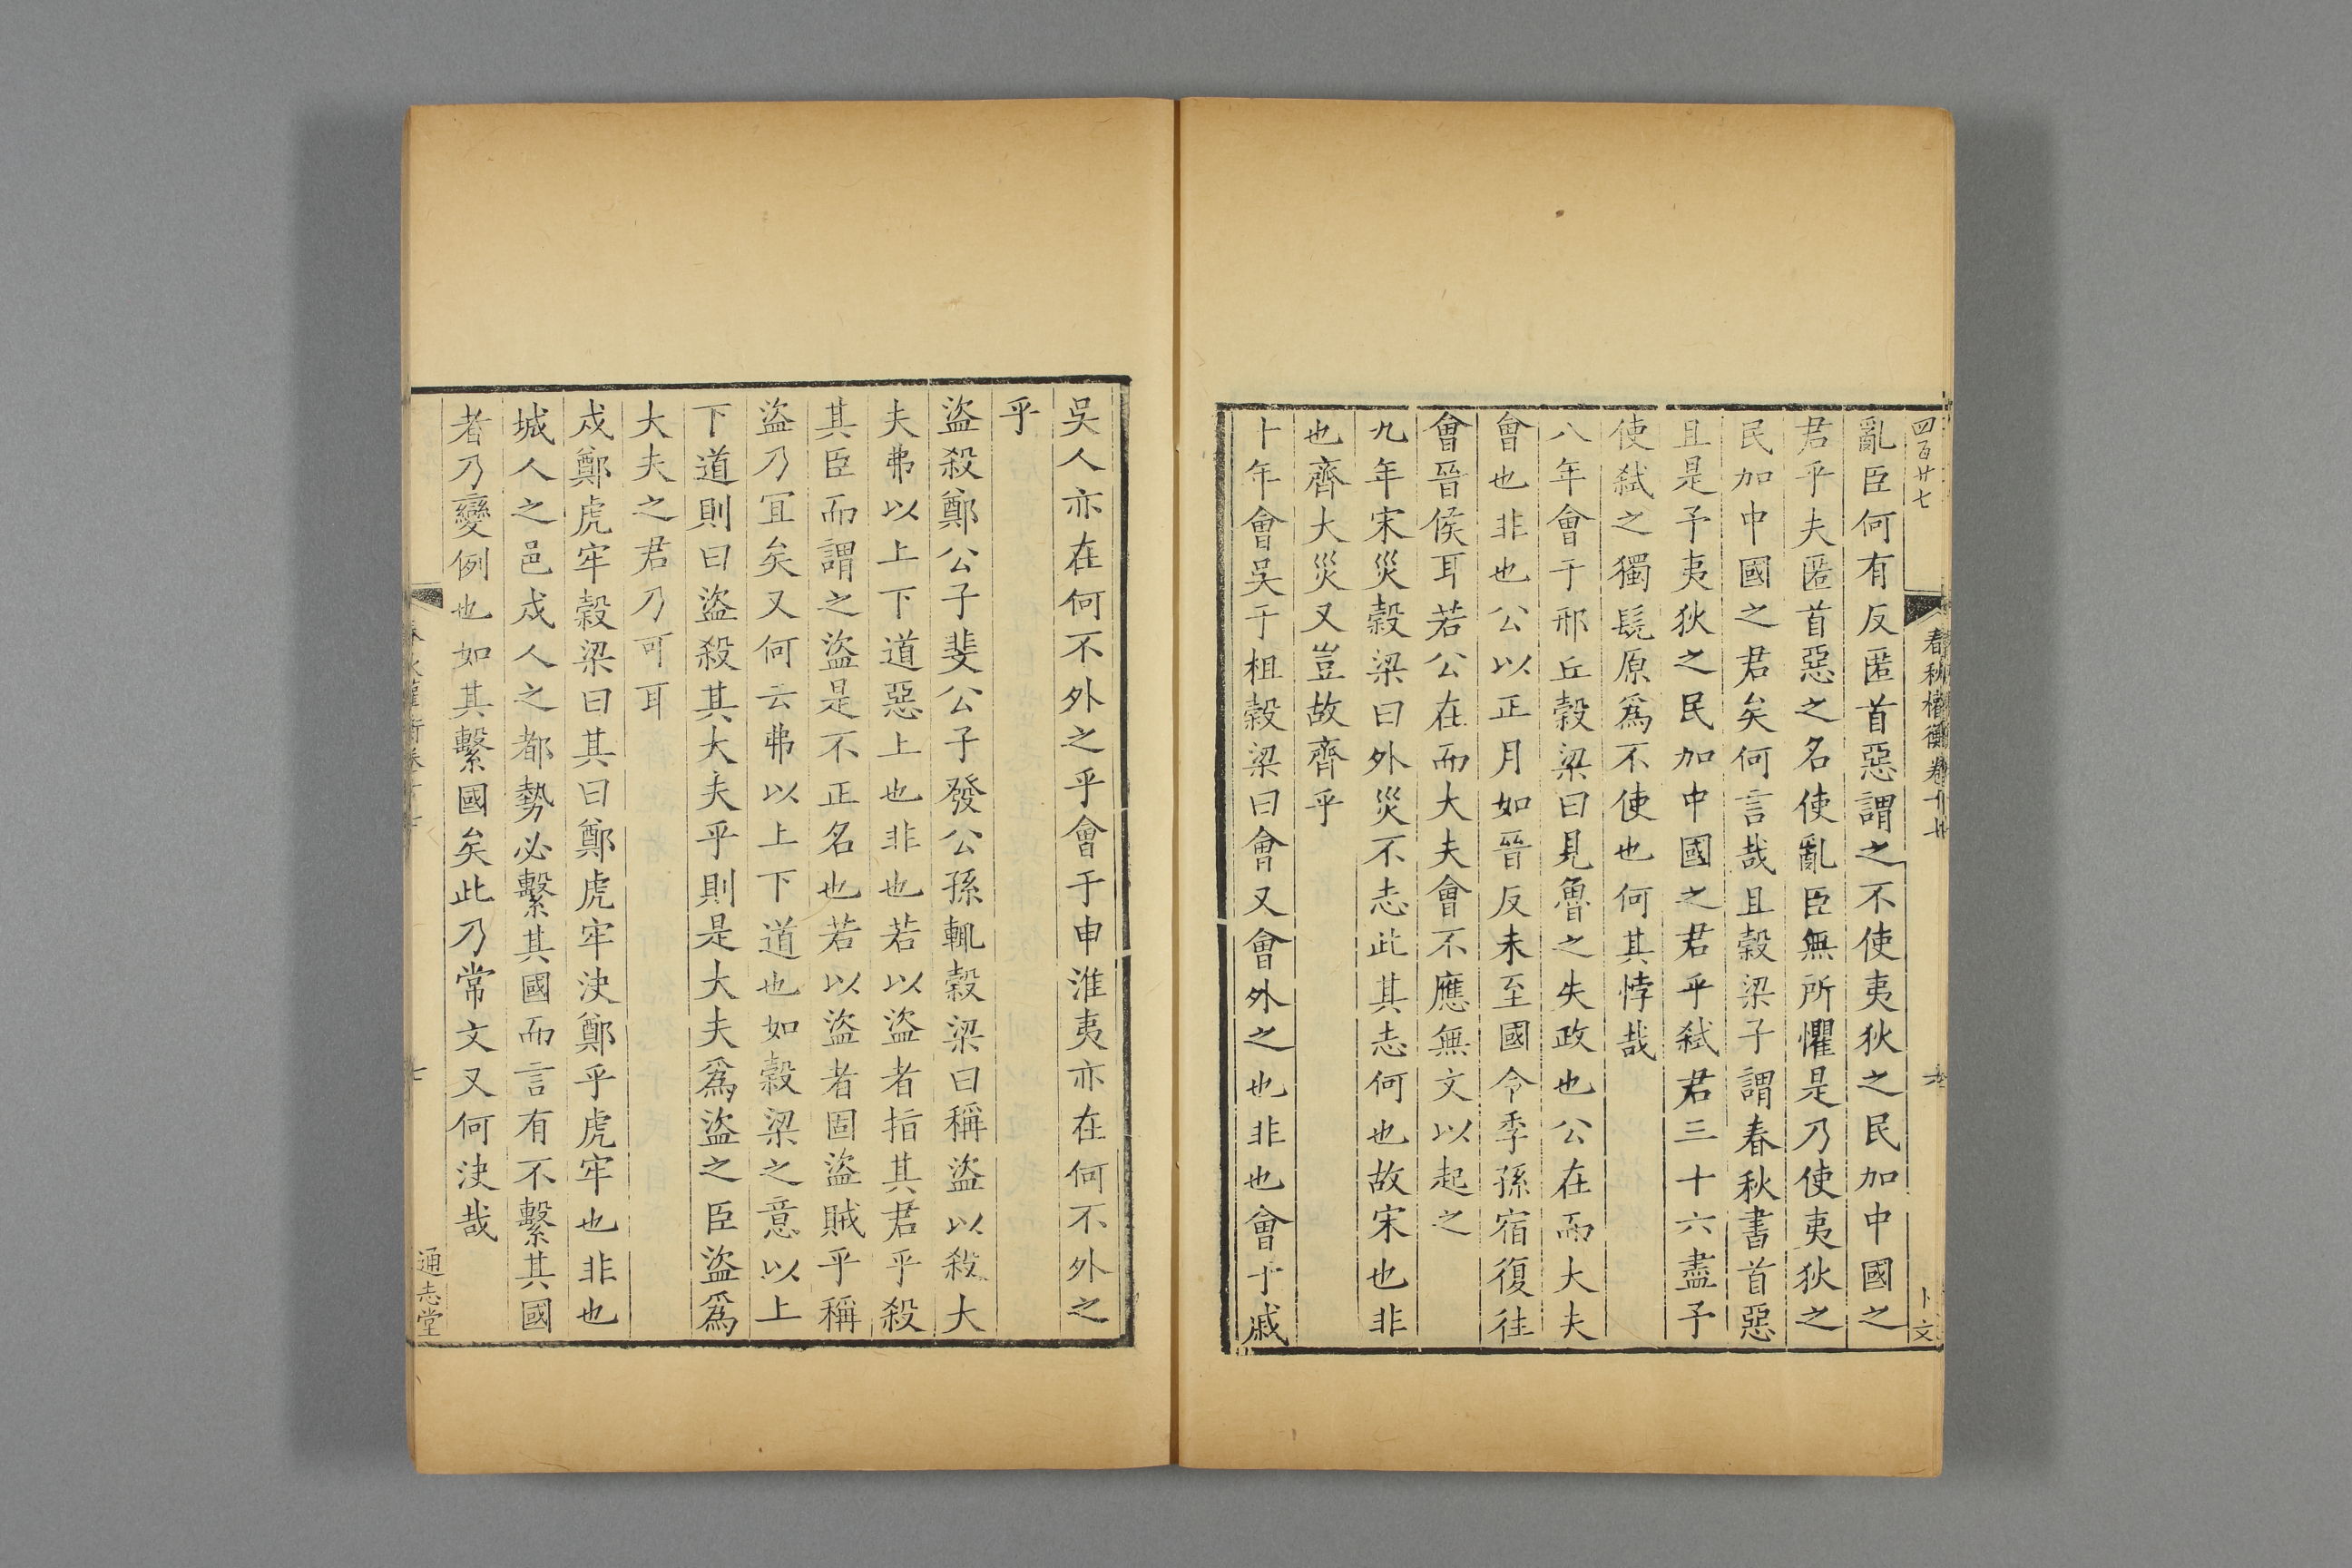 四百廿七
春秋權衡卷十七
卜文
亂臣何有反匿首惡謂之不使夷狄之民加中國之
君乎夫匿首惡之名使亂臣無所懼是乃使夷狄之
民加中國之君矣何言哉且穀梁子謂春秋書首惡
且是予夷狄之民加中國之君乎弑君三十六盡予
使弑之獨髡原爲不使也何其悖哉
八年會于邢丘穀梁曰見魯之失政也公在而大夫
會也非也公以正月如晉反未至國令季孫宿復往
會晉侯耳若公在而大夫會不應無文以起之
九年宋災穀梁曰外災不志此其志何也故宋也非
也齊大災又豈故齊乎
十年會吳于柤穀梁曰會又會外之也非也會于戚
吳人亦在何不外之乎會于申淮夷亦在何不外之
乎
盜殺鄭公子斐公子發公孫輒穀梁曰稱盜以殺大
夫弗以上下道惡上也非也若以盜者指其君乎殺
其臣而謂之盜是不正名也若以盜者固盜賊乎稱
盜乃宜矣又何云弗以上下道也如穀梁之意以上
下道則曰盜殺其大夫乎則是大夫爲盜之臣盜爲
大夫之君乃可耳
戍鄭虎牢穀梁曰其曰鄭虎牢決鄭乎虎牢也非也
城人之邑戍人之都勢必繫其國而言有不繫其國
者乃變例也如其繫國矣此乃常文又何決哉
通志堂